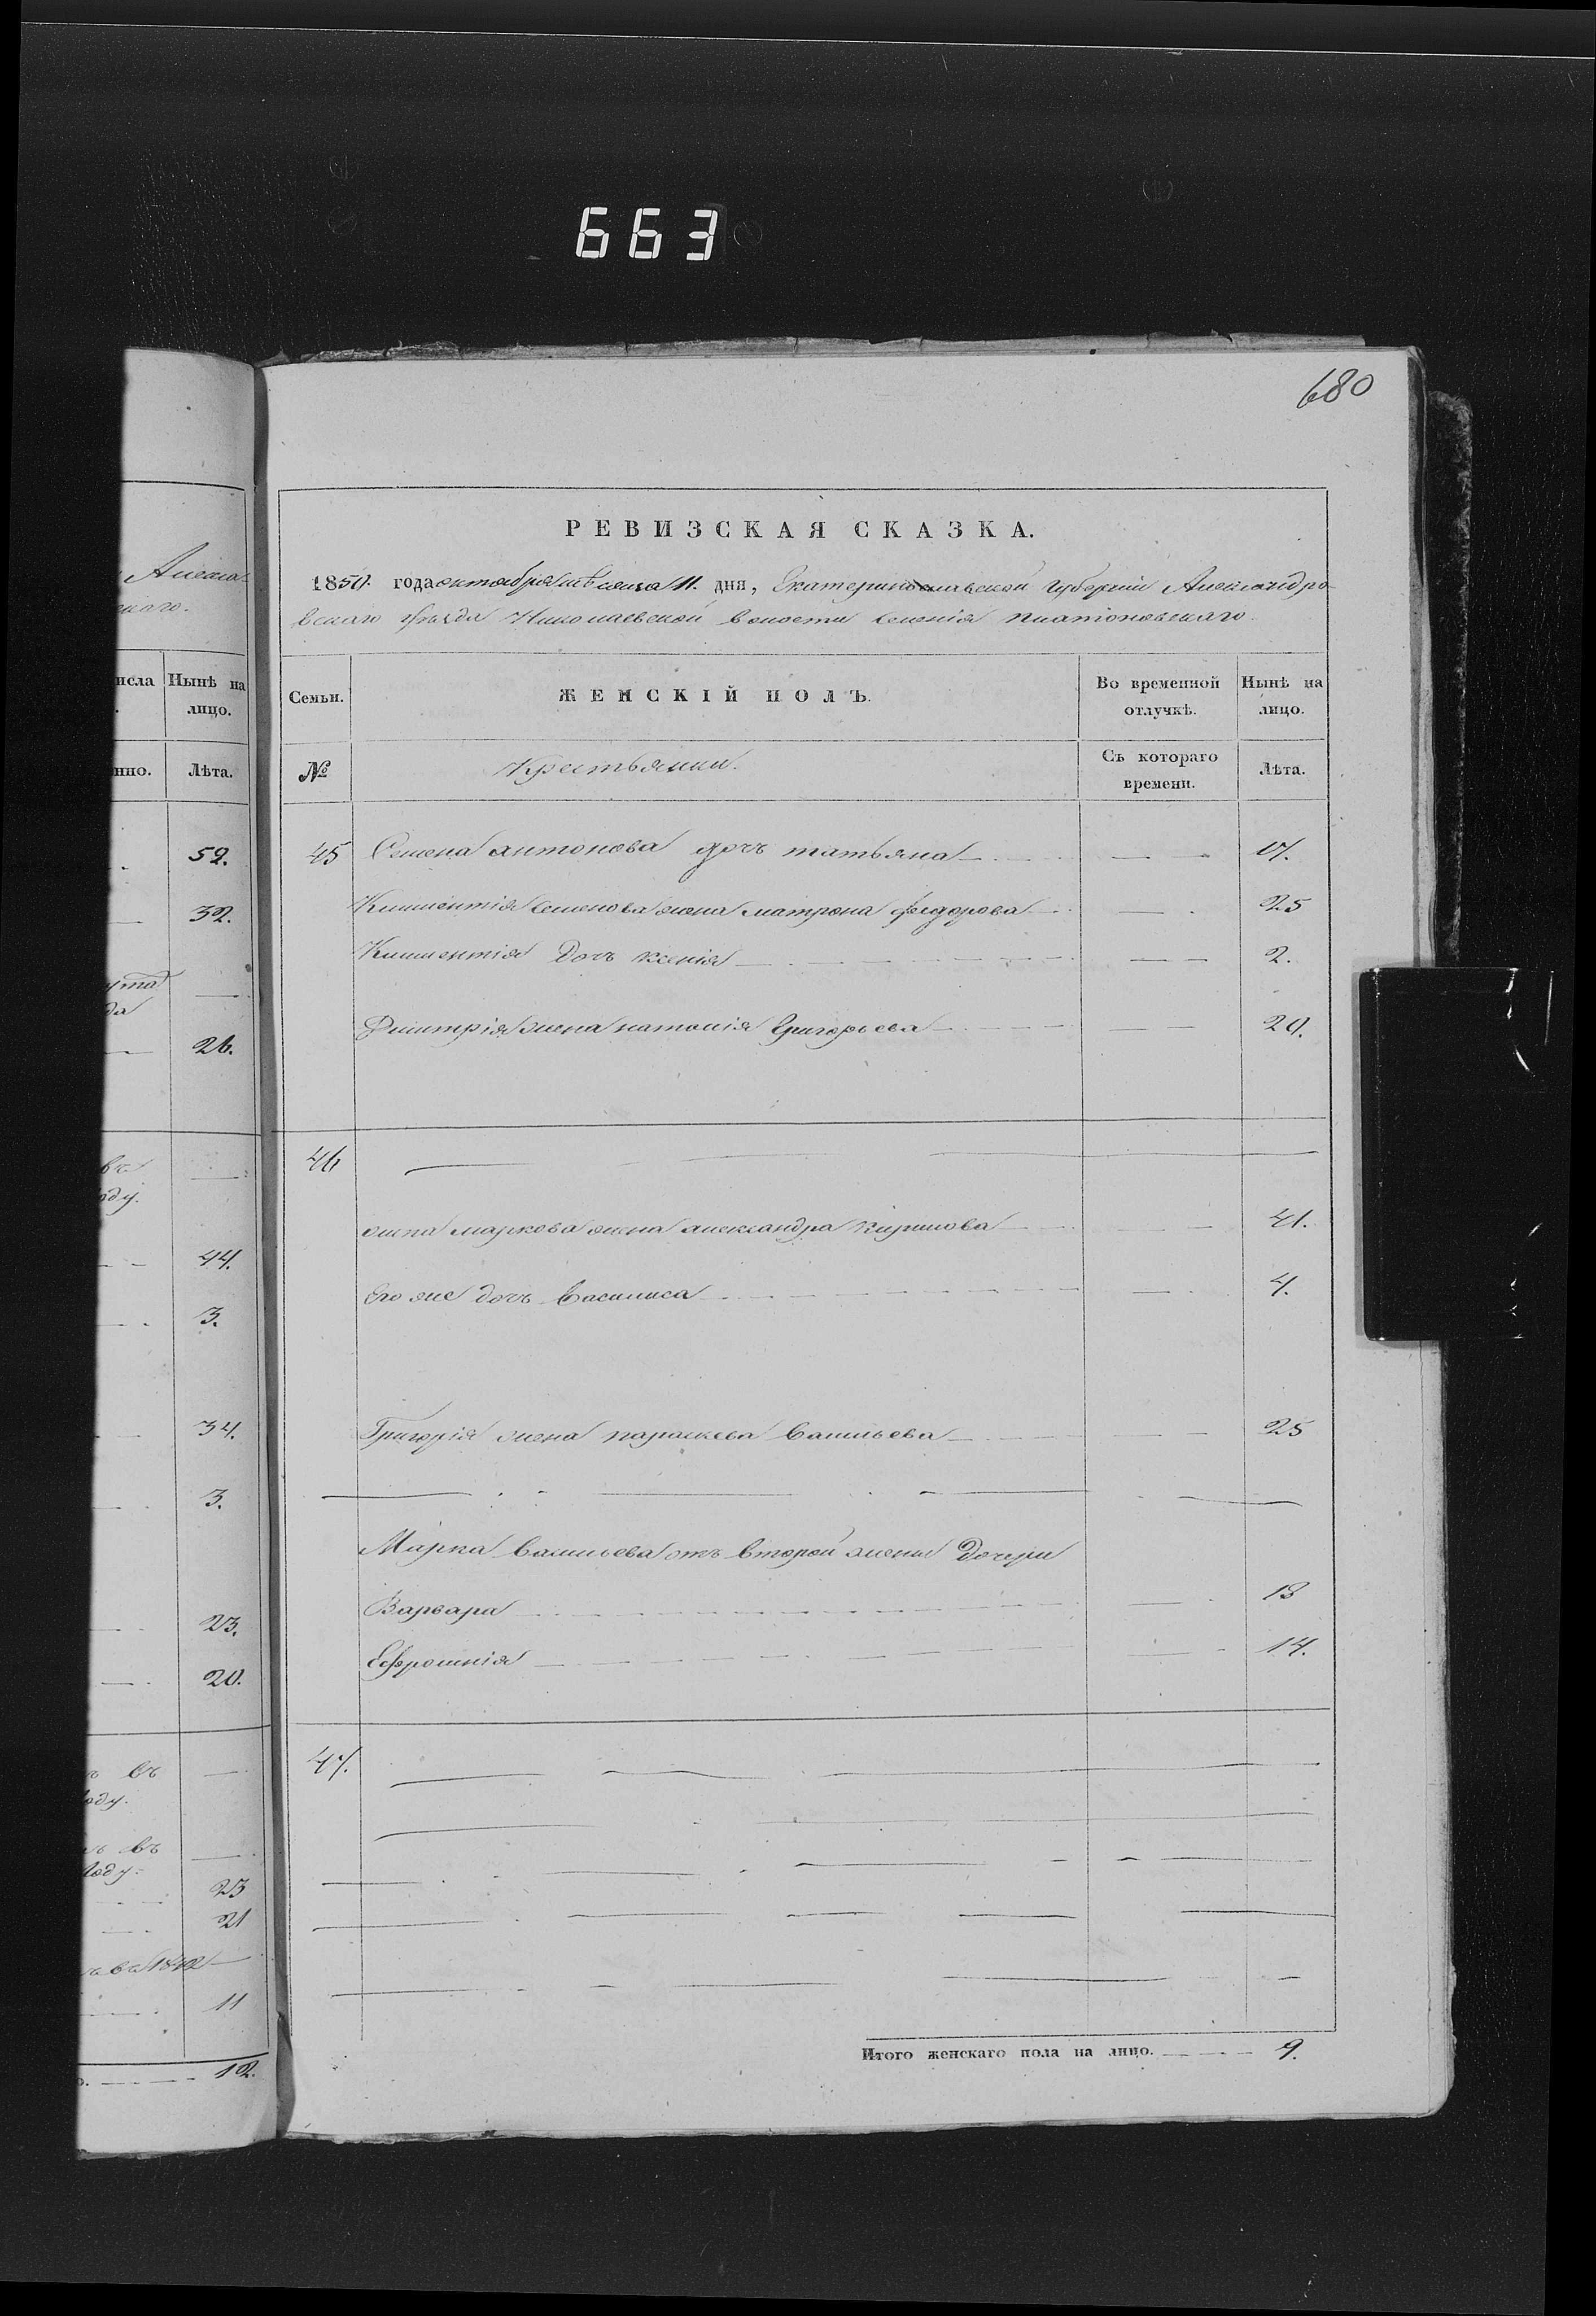 663
680
Алекса
скаго.
исла Нынѣ на
лицо.
нно. Лѣта.
52.
32.
26.
въ
оду.
44.
3.
34.
3.
23.
20.
въ
оду.
въ
году.
23
21
въ 1842
11
12.
РЕВИЗСКАЯ СКАЗКА.
1850. года октября мѣсяца 11. дня, Екатеринославской Губерніи Александро
вскаго уѣзда Николаевской волости селенія Платоновскаго.
Семьи. ЖЕНСКІЙ ПОЛЪ. Во временной отлучкѣ. Нынѣ на лицо.
№ Крестьянки. Съ котораго времени. Лѣта.
45 Семена антонова дочь татьяна 17.
Климентія семенова жена матрона федорова 25
Климентія дочь ксенія 2.
Дмитрія жена наталія Григорьева 20.
46
маркова жена александра кирилова 41.
Его же дочь Василиса 4.
Григорія жена параскева Васильева 25
Марка васильева отъ второй жены дочери
Варвара 18
Ефросинія 14.
47.
Итого женскаго пола на лицо. 9.